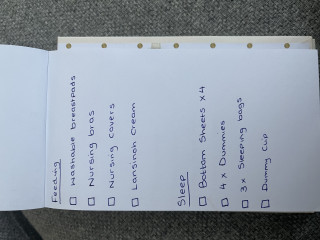 Feeding
☐ Washable breastpads
☐ Nursing bras
☐ Nursing covers
☐ Lansinoh Cream
Sleep
☐ Bottom Sheets x4
☐ 4 x Dummies
☐ 3 x Sleeping bags
☐ Dummy Cup